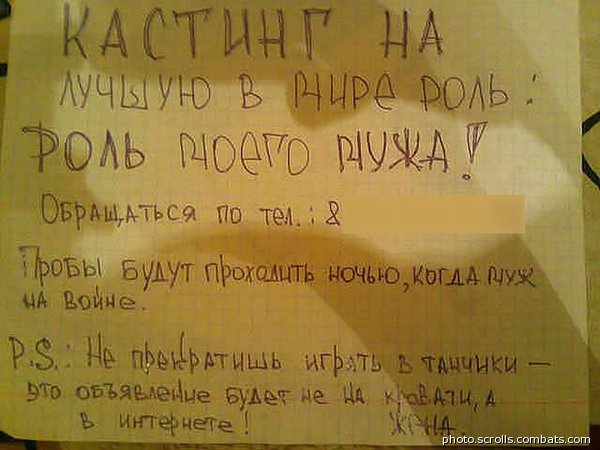 КАСТИНГ НА
ЛУЧШУЮ В МИРЕ РОЛЬ:
РОЛЬ МОЕГО МУЖА!
ОБРАЩАТЬСЯ ПО ТЕЛ.: 8
ПРОБЫ БУДУТ ПРОХОДИТЬ НОЧЬЮ, КОГДА МУЖ
НА ВОЙНЕ.
P.S.: НЕ ПРЕКРАТИШЬ ИГРАТЬ В ТАНЧИКИ —
ЭТО ОБЪЯВЛЕНИЕ БУДЕТ НЕ НА КРОВАТИ, А
В ИНТЕРНЕТЕ! ЖЕНА.
photo.scrolls.combats.com